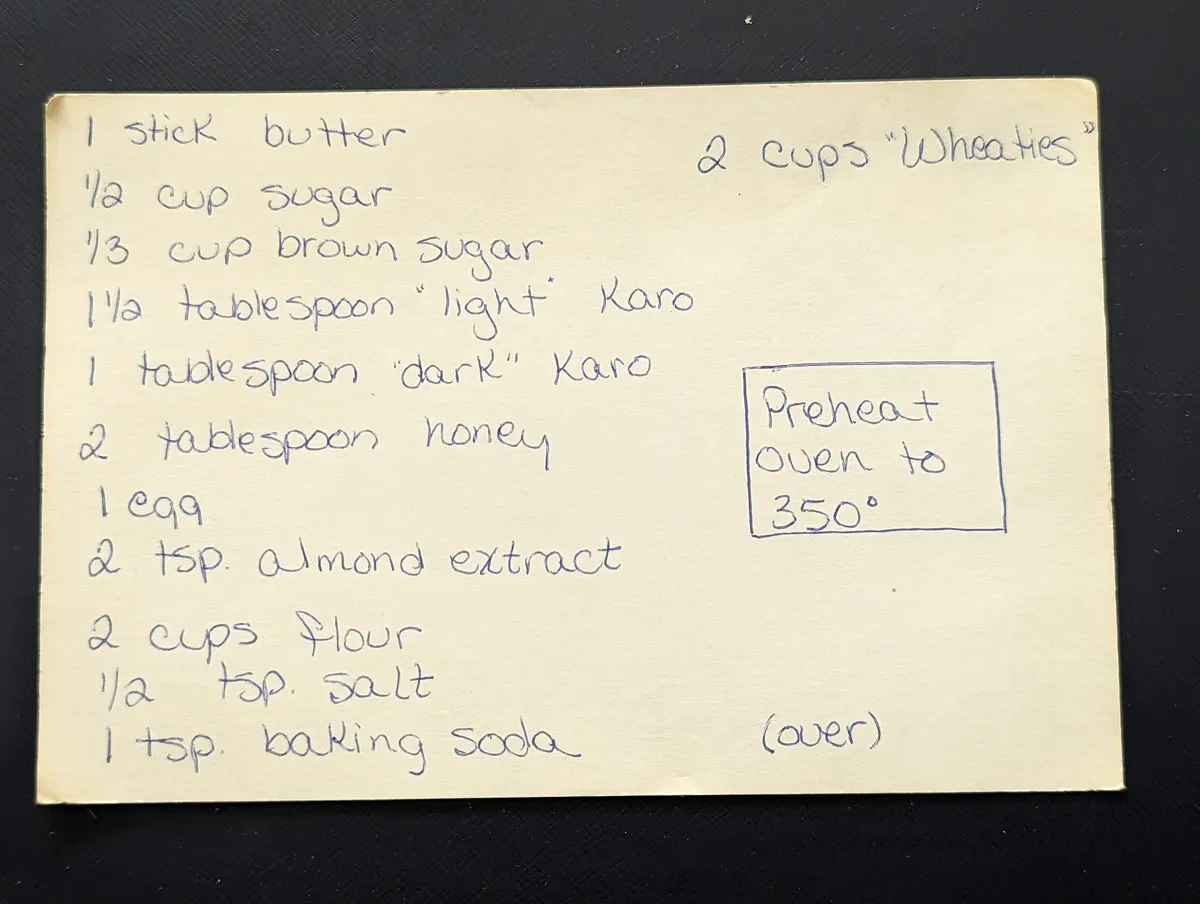 1 stick butter
1/2 cup sugar
1/3 cup brown sugar
1 1/2 tablespoon "light" Karo
1 tablespoon "dark" Karo
2 tablespoon honey
1 egg
2 tsp. almond extract
2 cups flour
1/2 tsp. salt
1 tsp. baking soda
2 cups "Wheaties"
Preheat
oven to
350°
(over)